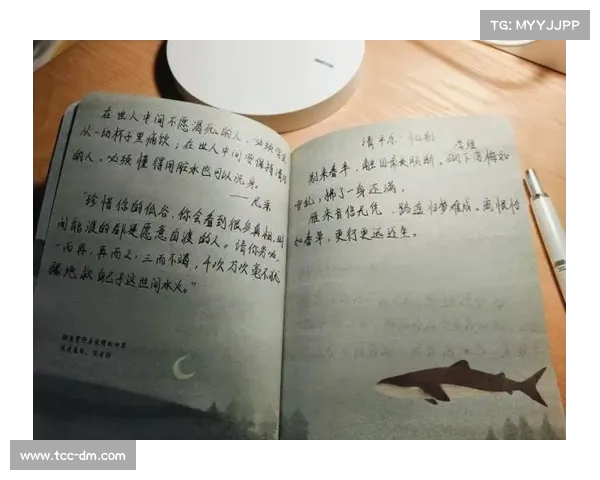 TG: MYYJJPP
在世人中间不愿渴死的人，必须学会
从一切杯子里痛饮；在世人中间要保持清洁
的人，必须懂得用脏水也可以洗身。
——尼采
“珍惜你的低谷，你会看到很多真相，时
间能渡的都是愿意自渡的人。请你务必，
一而再，再而三，三而不竭，千次万次毫不犹
豫地救自己于这世间水火。”
清平乐·忆别
李煜
别来春半，触目柔肠断。砌下落梅如
雪乱，拂了一身还满。
雁来音信无凭，路遥归梦难成。离恨恰
如春草，更行更远还生。
www.tcc-dm.com